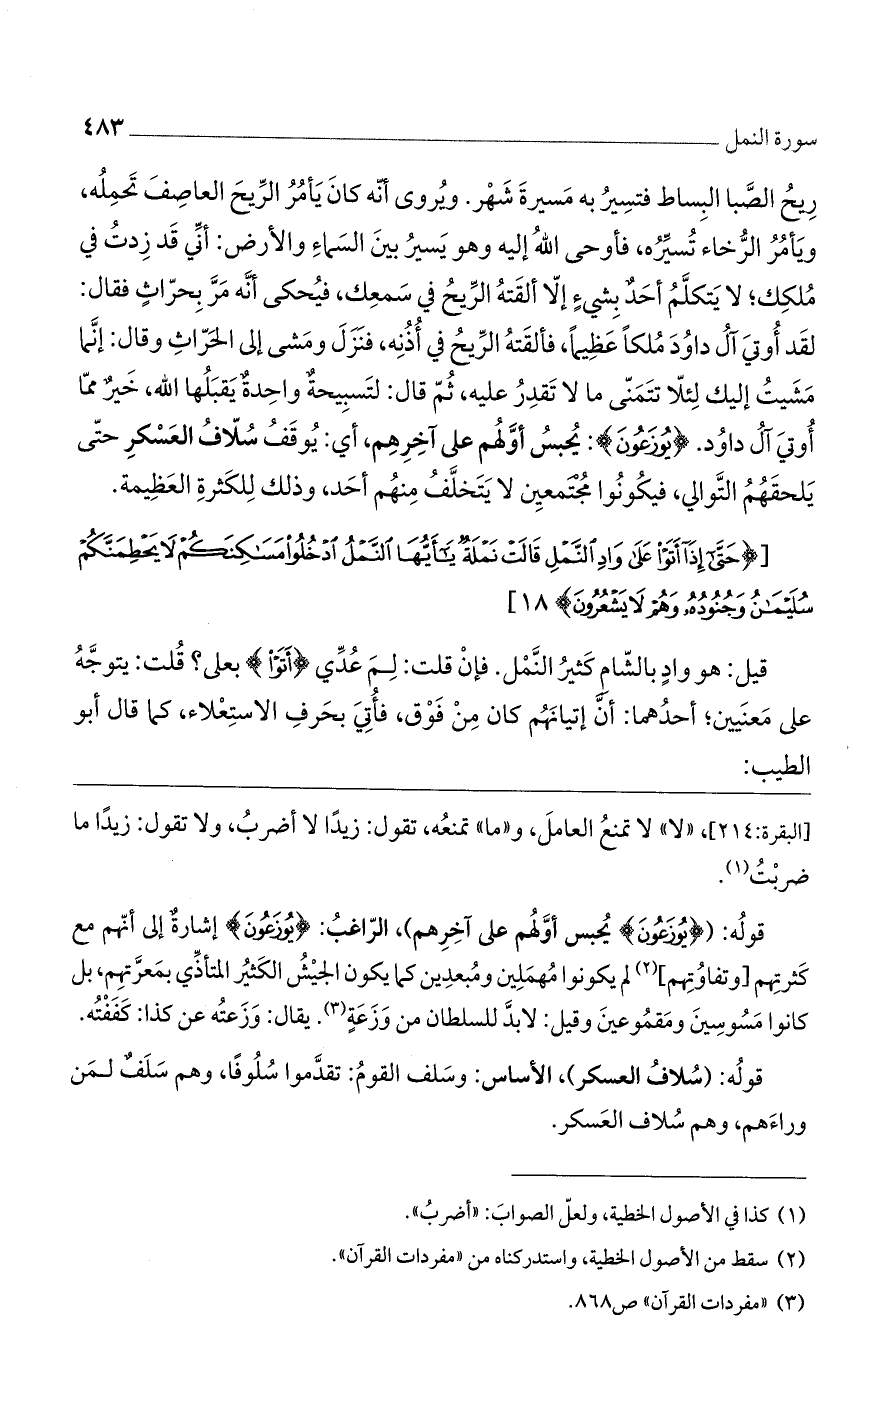 سورة النمل ٤٨٣
رِيحُ الصَّبا البِساط فتسِيرُ به مَسيرةَ شَهْر. ويُروى أنّه كانَ يَأمُرُ الرِّيحَ العاصِفَ تَحمِلُه،
ويَأمُرُ الرُّخاء تُسيِّرُه، فأوحى اللهُ إليه وهو يَسيرُ بينَ السَّماءِ والأرض: أنّي قَد زِدتُ في
مُلكِك؛ لا يَتكلَّمُ أحَدٌ بِشيءٍ إلّا ألقَتهُ الرِّيحُ في سَمعِك، فيُحكى أنَّه مَرَّ بِحرّاثٍ فقال:
لقَد أُوتيَ آلُ داوُدَ مُلكاً عَظِيماً، فألقَتهُ الرِّيحُ في أُذُنِه، فنَزَلَ ومَشى إلى الحَرّاثِ وقال: إنَّما
مَشَيتُ إليك لِئلّا تتَمَنّى ما لا تَقدِرُ عليه، ثُمّ قال: لتَسبِيحةٌ واحِدةٌ يَقبَلُها الله، خَيرٌ ممّا
أُوتيَ آلُ داوُد. ﴿يُوزَعُونَ﴾: يُحبسُ أوَّلُهم على آخِرِهِم، أي: يُوقَفُ سُلّافُ العَسْكرِ حتّى
يَلحقَهُمُ التَّوالي، فيكُونُوا مُجتَمعِين لا يَتَخلَّفُ مِنهُم أحَد، وذلك لِلكَثرةِ العَظِيمة.
[﴿حَتَّىٰٓ إِذَآ أَتَوْا۟ عَلَىٰ وَادِ ٱلنَّمْلِ قَالَتْ نَمْلَةٌ يَٰٓأَيُّهَا ٱلنَّمْلُ ٱدْخُلُوا۟ مَسَٰكِنَكُمْ لَا يَحْطِمَنَّكُمْ
سُلَيْمَٰنُ وَجُنُودُهُۥ وَهُمْ لَا يَشْعُرُونَ﴾ ١٨]
قيل: هو وادٍ بالشّامِ كَثيرُ النَّمْل. فإنْ قلت: لِمَ عُدِّي ﴿أَتَوْا۟﴾ بعلى؟ قُلت: يتوجَّهُ
على مَعنَيين؛ أحدُهما: أنَّ إتيانَهُم كان مِنْ فَوْق، فأُتِيَ بحَرفِ الاستِعْلاء، كما قال أبو
الطيب:
[البقرة:٢١٤]، «لا» لا تمنعُ العاملَ، و«ما» تمنعُه، تقول: زيدًا لا أضربُ، ولا تقول: زيدًا ما
ضربْتُ(١).
قولُه: (﴿يُوزَعُونَ﴾ يُحبس أوَّلُهم على آخِرِهم)، الرّاغبُ: ﴿يُوزَعُونَ﴾ إشارةٌ إلى أنّهم مع
كَثرتِهم [وتفاوُتِهم](٢) لم يكونوا مُهمَلِين ومُبعدِين كما يكون الجَيْشُ الكَثيرُ المتأذِّي بمَعرَّتِهم، بل
كانوا مَسُوسِينَ ومَقمُوعينَ وقيل: لابدَّ للسلطان من وَزَعَةٍ(٣). يقال: وَزَعتُه عن كذا: كَفَفْتُه.
قولُه: (سُلافُ العسكر)، الأساس: وسَلف القومُ: تقدَّموا سُلُوفًا، وهم سَلَفٌ لـمَن
وراءَهم، وهم سُلاف العَسكر.
(١) كذا في الأصول الخطية، ولعلّ الصوابَ: «أضربُ».
(٢) سقط من الأصول الخطية، واستدركناه من «مفردات القرآن».
(٣) «مفردات القرآن» ص٨٦٨.